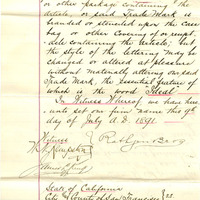 or other package containing the
article, or said Trade Mark is
branded or stenciled upon the case
bag or other covering or recept-
acle containing the article; but
the style of the lettering may be
changed or altered at pleasure
without materially altering our said
Trade Mark, the essential feature of
which is the word "Ideal"
In Witness Whereof we have here-
unto set our firm name this 9th
day of July A.D. 1891.
Witness
State of California
City & County of San Francisco } ss.